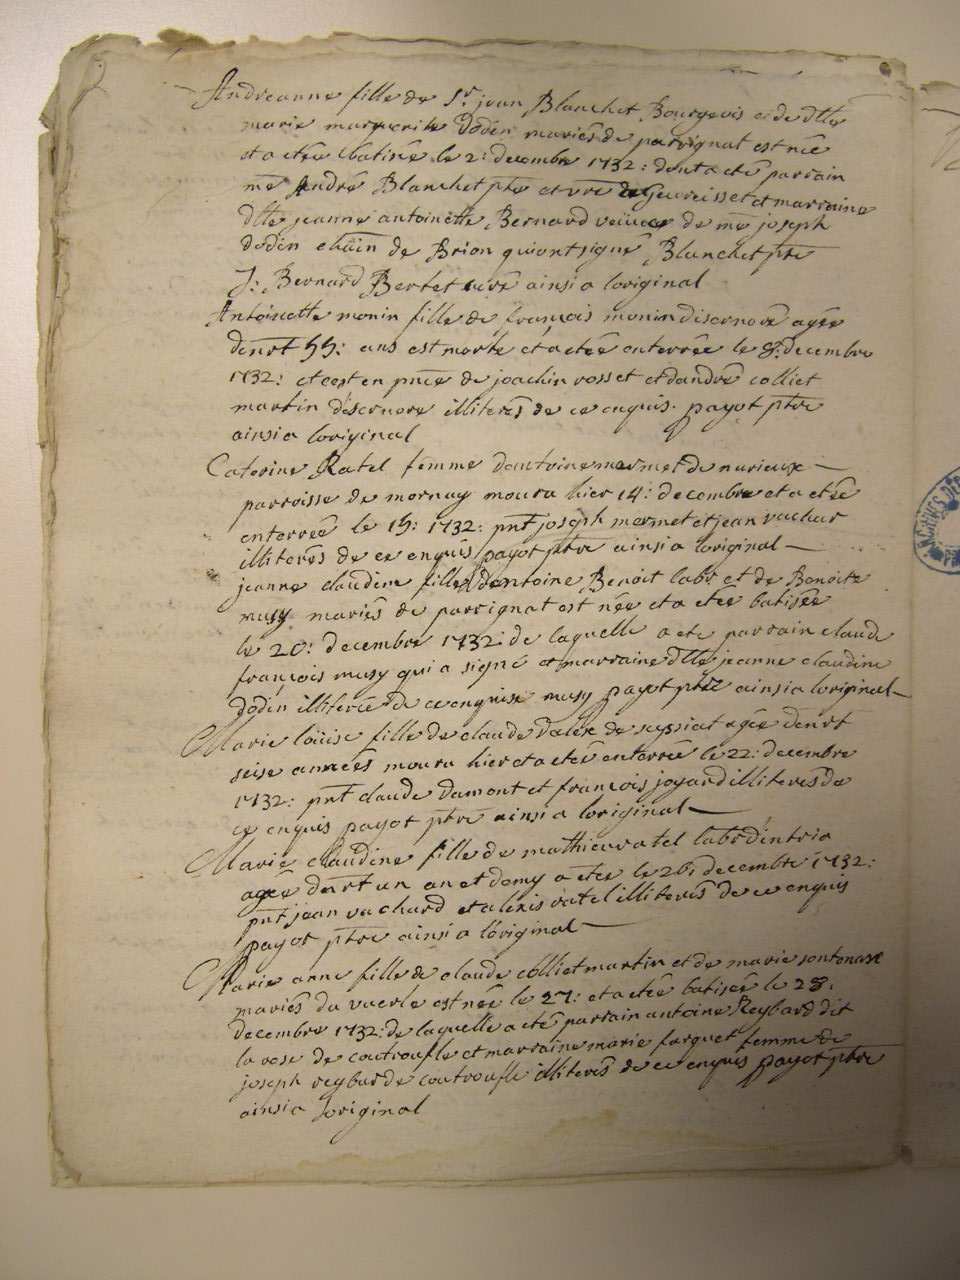 Andreanne fille de Sr. jean Blanchet Bourgeois et de dlle
marie marguerite Dodin mariés de parrignat est née
et a etée batisée le 2: decembre 1732: dont a eté parrain
me André Blanchet ptre et vre de Gevreisset et marraine
dlle jeanne antoinette Bernard veüve de me joseph
dodin chãin de Brion qui ont signé Blanchet ptre
J: Bernard Bertet curé ainsi a loriginal
Antoinette monin fille de françois monin disernore agée
denrt 55: ans est morte et a etée enterrée le 8: decembre
1732: et cest en pnce de joachin rosset et dandré colliet
martin disernore illiterés de ce enquis. payot ptre
ainsi a loriginal
Caterine Ratel femme dantoine mermet de nurieux
parroisse de mornay mouru hier 14: decembre et a etée
enterrée le 15: 1732: pnt joseph mermet et jean vachar
illiterés de ce enquis payot ptre ainsi a loriginal
jeanne claudine fille dantoine Benoit labr et de Benoite
musy mariés de parrignat est née et a etée batisée
le 20: decembre 1732: de laquelle a eté parrain claude
françois musy qui a signé et marraine dlle jeanne claudine
dodin illiterée de ce enquise musy payot ptre ainsi a loriginal
Marie loüise fille de claude Dalex de seyssiat agée denrt
seise années mouru hier et a etée enterree le 22: decembre
1732: pnt claude damont et françois joyard illiterés de
ce enquis payot ptre ainsi a loriginal
Marie claudine fille de mathieu ratel labr dintria
agée denrt un an et demy a etee le 26: decembre 1732:
pnt jean vachard et alexis ratel illiterés de ce enquis
payot ptre ainsi a loriginal
Marie anne fille de claude colliet martin et de marie sontonax
mariés du vuerle est née le 27: et a etée batisée le 28:
decembre 1732: de laquelle a eté parrain antoine Reybard dit
la rose de coutroufle et marraine marie farguet femme de
joseph reybar de coutroufle illiterés de ce enquis payot ptre
ainsi a loriginal